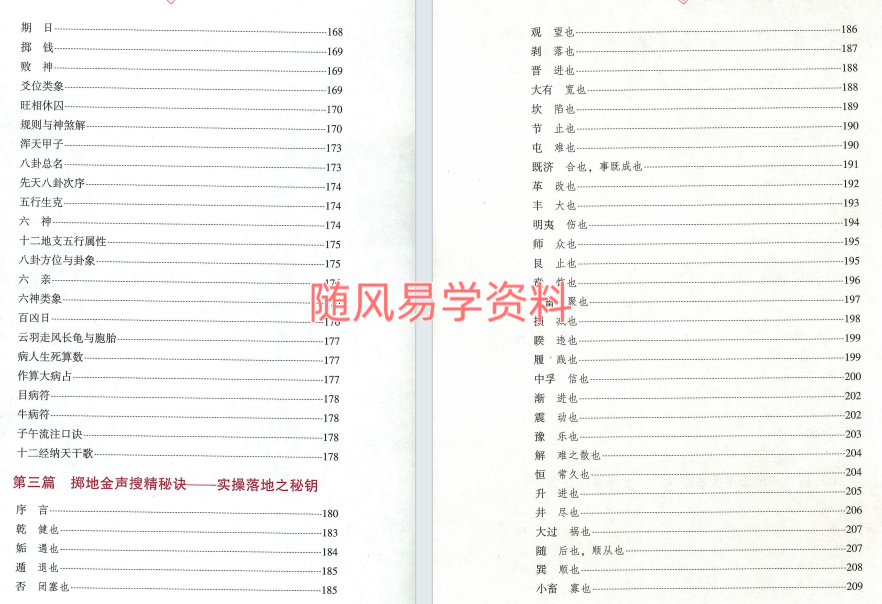 期 日 168
掷 钱 169
败 神 169
爻位类象 169
旺相休囚 170
规则与神煞解 170
浑天甲子 173
八卦总名 173
先天八卦次序 174
五行生克 174
六 神 174
十二地支五行属性 175
八卦方位与卦象 175
六 亲
六神类象
百凶日
云羽走风长龟与胞胎 177
病人生死算数 177
作算大病占 177
目病符 178
牛病符 178
子午流注口诀 178
十二经纳天干歌 178
第三篇 掷地金声搜精秘诀——实操落地之秘钥
序 言 180
乾 健也 183
姤 遇也 184
遁 退也 185
否 闭塞也 185
观 望也 186
剥 落也 187
晋 进也 188
大有 宽也 188
坎 陷也 189
节 止也 190
屯 难也 190
既济 合也，事既成也 191
革 改也 192
丰 大也 193
明夷 伤也 194
师 众也 195
艮 止也 195
也 196
聚也 197
也 198
睽 违也 199
履 践也 199
中孚 信也 200
渐 进也 202
震 动也 202
豫 乐也 203
解 难之散也 204
恒 常久也 204
升 进也 205
井 尽也 206
大过 祸也 207
随 后也，顺从也 207
巽 顺也 208
小畜 寡也 209
随风易学资料